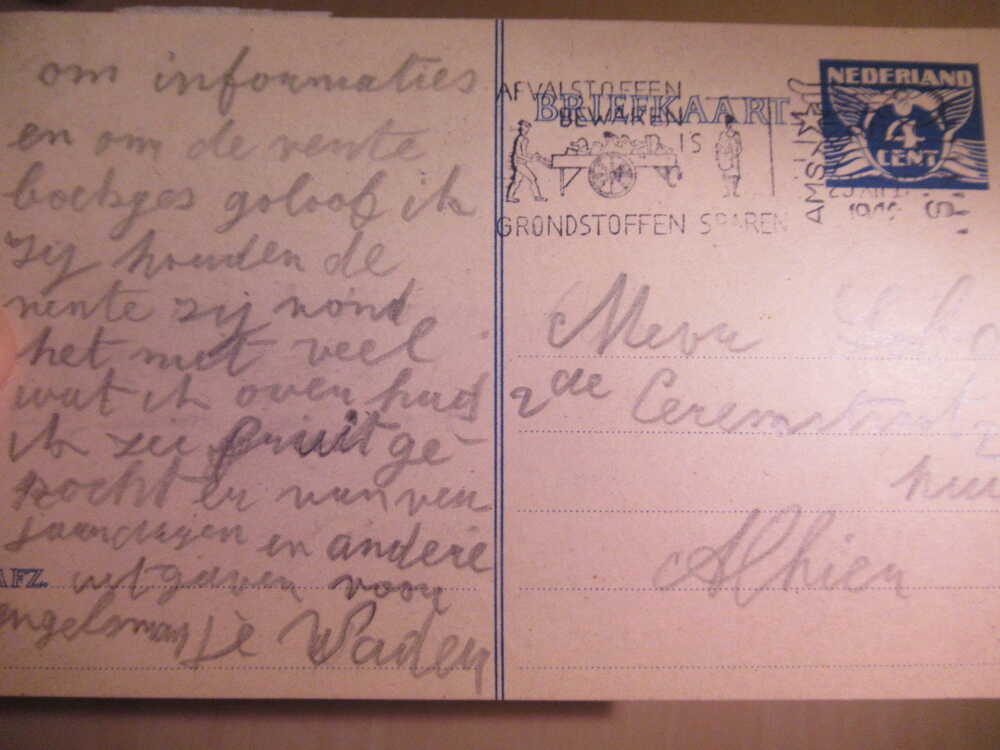 om informaties
en om de rente
boekjes geloof ik
zij houden de
rente zij vond
het niet veel
wat ik over had
ik zei fruit ge-
kocht en van ver
jaardagen en andere
AFZ. uitgaven voor
engelsman Je Vader
AFVALSTOFFEN
BEWAREN
IS
GRONDSTOFFEN SPAREN
BRIEFKAART
AMS
NEDERLAND
4
CENT
Mevr
2de Ceramstraat
Alhier